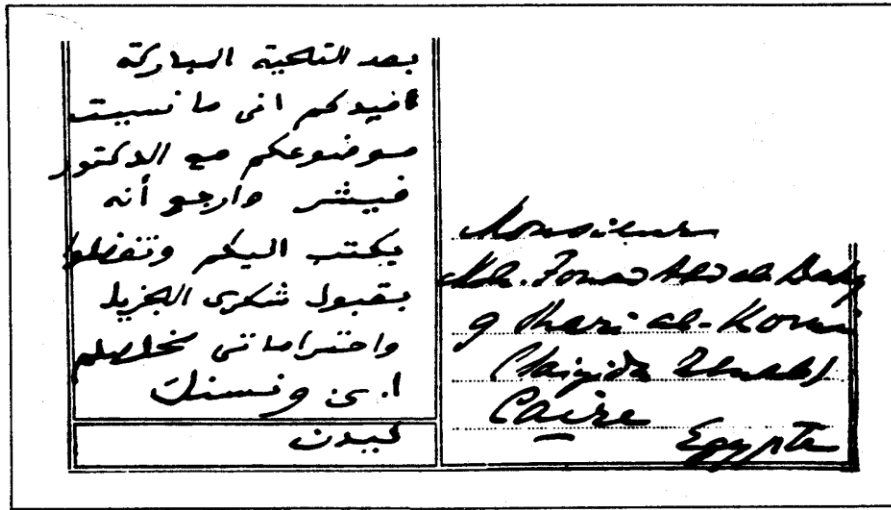 بعد التحية المباركة
أفيدكم انى ما نسيت
موضوعكم مع الدكتور
فيشر وارجو أنه
يكتب اليكم وتفضلوا
بقبول شكرى الجزيل
واحتراماتى مخلصكم
ا. ى ونسنك
ليدن
Monsieur
Moh. Fouad Abd al-Baky
9 Shari al-Komi
(Saiyida Zeinab)
Caire
Egypte